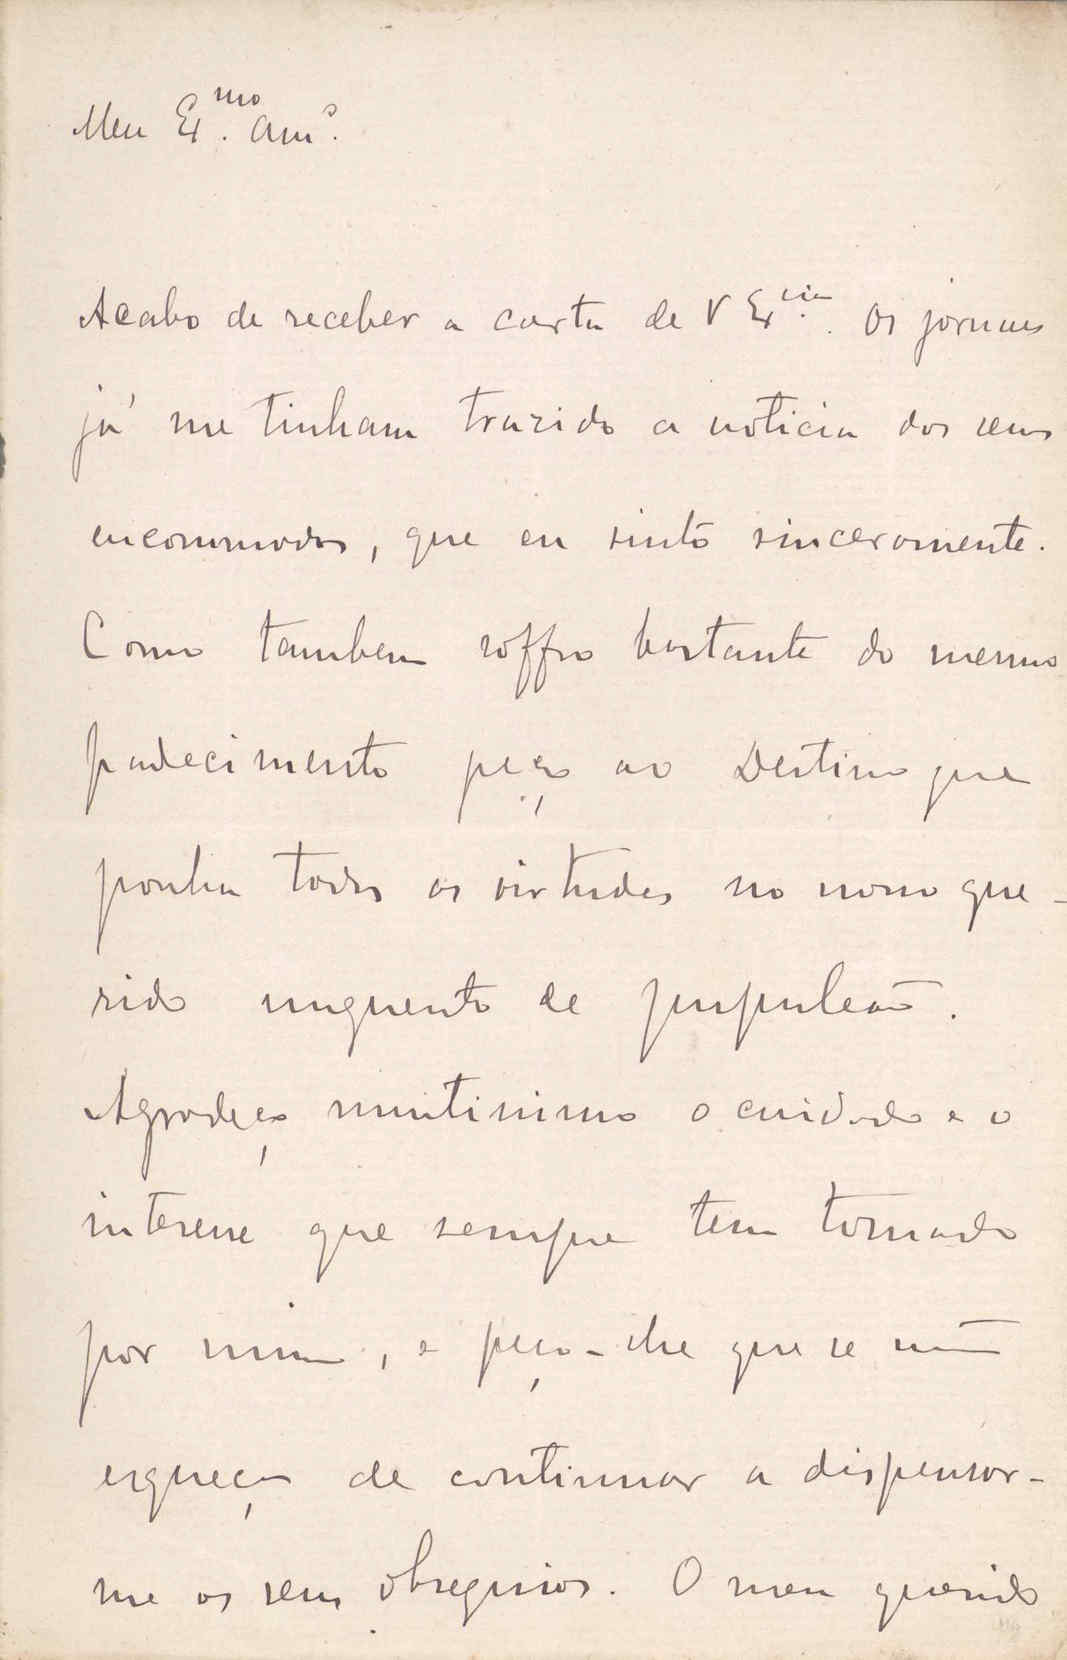 Meu Ex.mo Amo.
Acabo de receber a carta de V Ex.cia. Os jornaes
já me tinham trazido a noticia dos seus
encommodos, que eu sinto sinceramente.
Como tambem soffro bastante do mesmo
padecimento peço ao Destino que
ponha todas as virtudes no nosso que-
rido unguento de populeão.
Agradeço muitissimo o cuidado e o
interesse que sempre tem tomado
por mim, e peço-lhe que se não
esqueça de continuar a dispensar-
me os seus obsequios. O meu querido